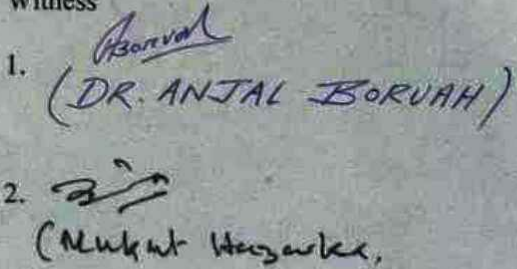 Witness
1. Aboruah
(DR. ANJAL BORUAH)
2.
(Mukut Hazarika,